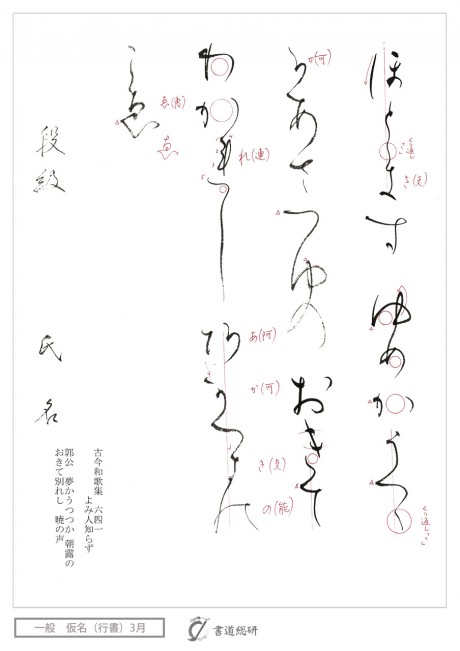 ほとゝきす ゆめかうつゝ
くり返し
き(支)
くり返し
かあさつゆの おきて
か(可)
わかれし あかつきの
れ(連)
あ(阿)
か(可)
き(支)
の(能)
こゑ
ゑ(恵)
ゑ
段級 氏名
古今和歌集 六四一
よみ人知らず
郭公 夢かうつつか 朝露の
おきて別れし 暁の声
一般 仮名(行書)3月
書道総研